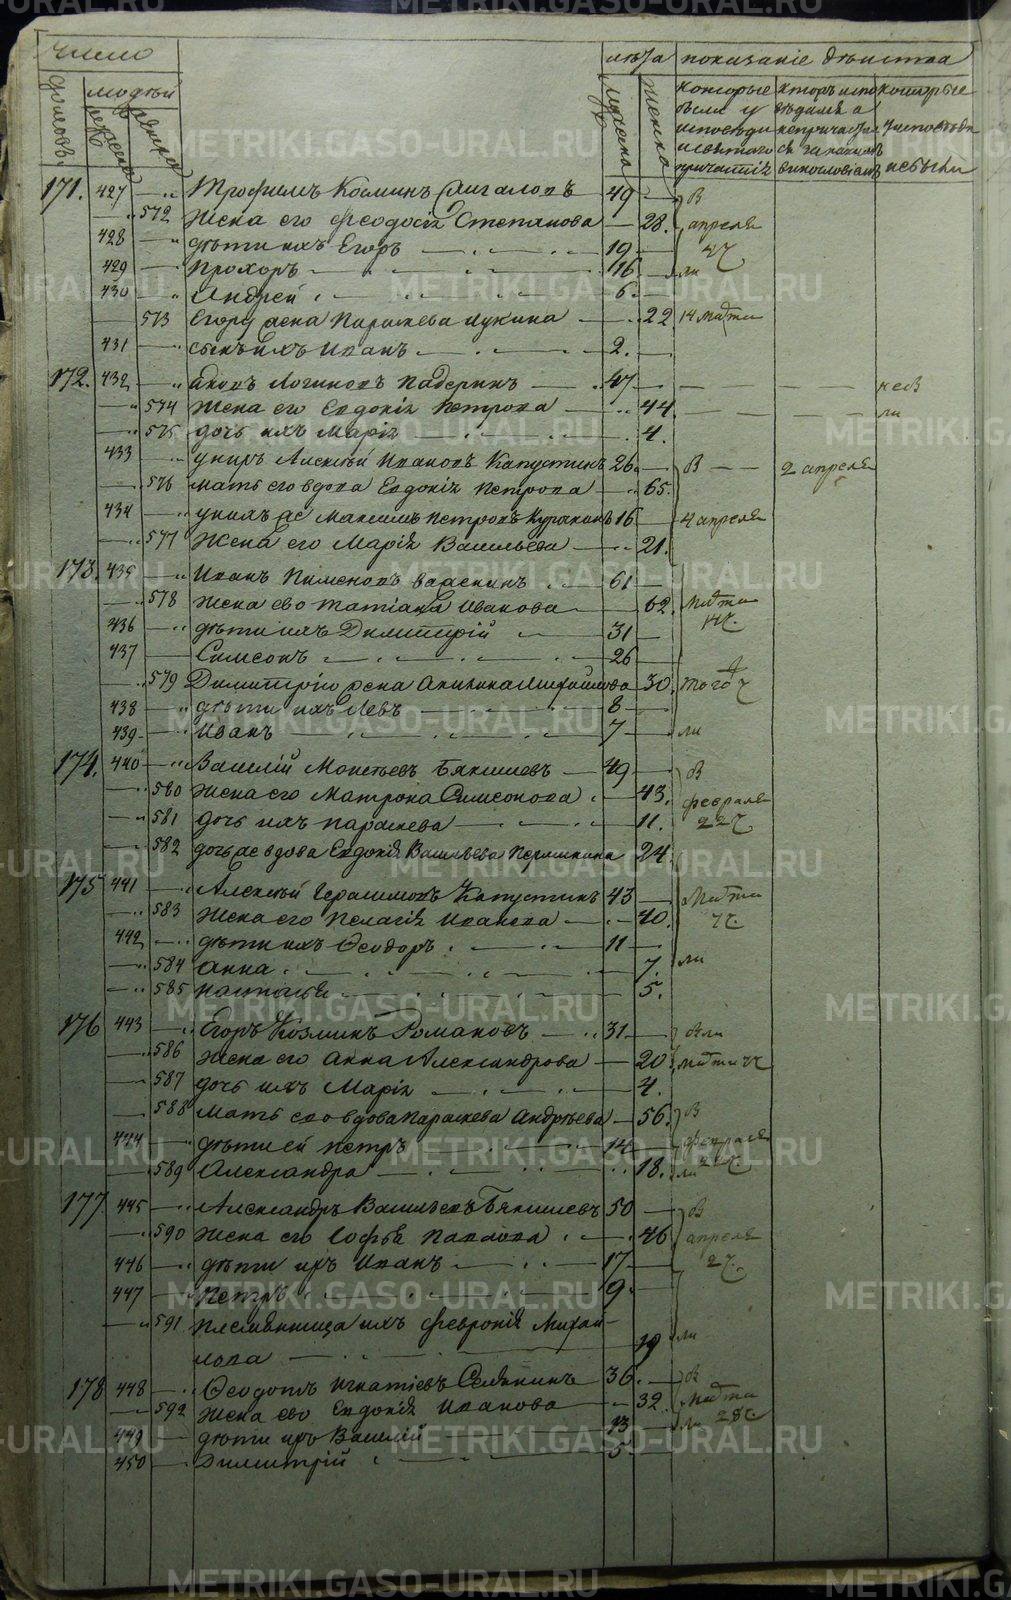 число лѣта показаніе дѣиства
домовъ людѣй мужеска женска которые были у исповѣди и святаго причастія
171. 427 Трофимъ Козминъ 49 В
572 Жена его Феодосія Степанова 28. апреля
428 дѣти ихъ Егоръ 19 4ч
429 Прохоръ 16 ли
430 Андрей 6.
573 Егору жена Параскева Лукина 22 14 марта
431 сынъ ихъ Иванъ 2.
172. 432 Логиновъ Падеринъ 47 не в
574 Жена его Евдокія Петрова 44. ли
575 дочь ихъ Марія 4.
433 Алексѣй Ивановъ Капустинъ 26. В 2 апреля
576 мать его вдова Евдокія Петрова 65.
434 Максимъ Петровъ 16 4 апреля
577 Жена его Марія Васильева 21.
173. 435 Иванъ Пименовъ 61
578 Жена ево Татіана Иванова 62. марта
436 дѣти ихъ Димитрій 31
437 Симеонъ 26
579 Димитрію жена Акилина Михайлова 30. того ч
438 дѣти ихъ Левъ 8
439 Иванъ 7 ли
174. 440 Василій Бякишевъ 49 В
580 Жена его Матрона Симеонова 43. февраля
581 дочь ихъ Параскева 11. 22ч
582 дочь же вдова Евдокія Васильева 24.
175 441 Алексѣй Герасимовъ Капустинъ 43 марта
583 Жена его Пелагія Иванова 40.
442 дѣти ихъ Ѳеодоръ 11
584 Анна 7. ли
585 Наталья 5.
176 443 Егоръ Козминъ Романовъ 31
586 Жена его Анна Александрова 20 марта
587 дочь ихъ Марія 4.
588 Мать ево вдова Параскева Андрѣева 56. В
444 дѣти ей Петръ 14 февраля
589 Александра 18. ли
177 445 Александръ Васильевъ Бякишевъ 50 В
590 Жена его Софья Павлова 46 апреля
446 дѣти ихъ Иванъ 17 2ч.
447 Петръ 9.
591 племянница ихъ Февронія Михаи-
лова 19 ли
178 448 Ѳеодотъ Игнатіевъ Селянинъ 36. В
592 Жена ево Евдокія Иванова 32. марта
449 дѣти ихъ Василій 13 ли 28ч.
450 Димитрій 5.
METRIKI.GASO-URAL.RU